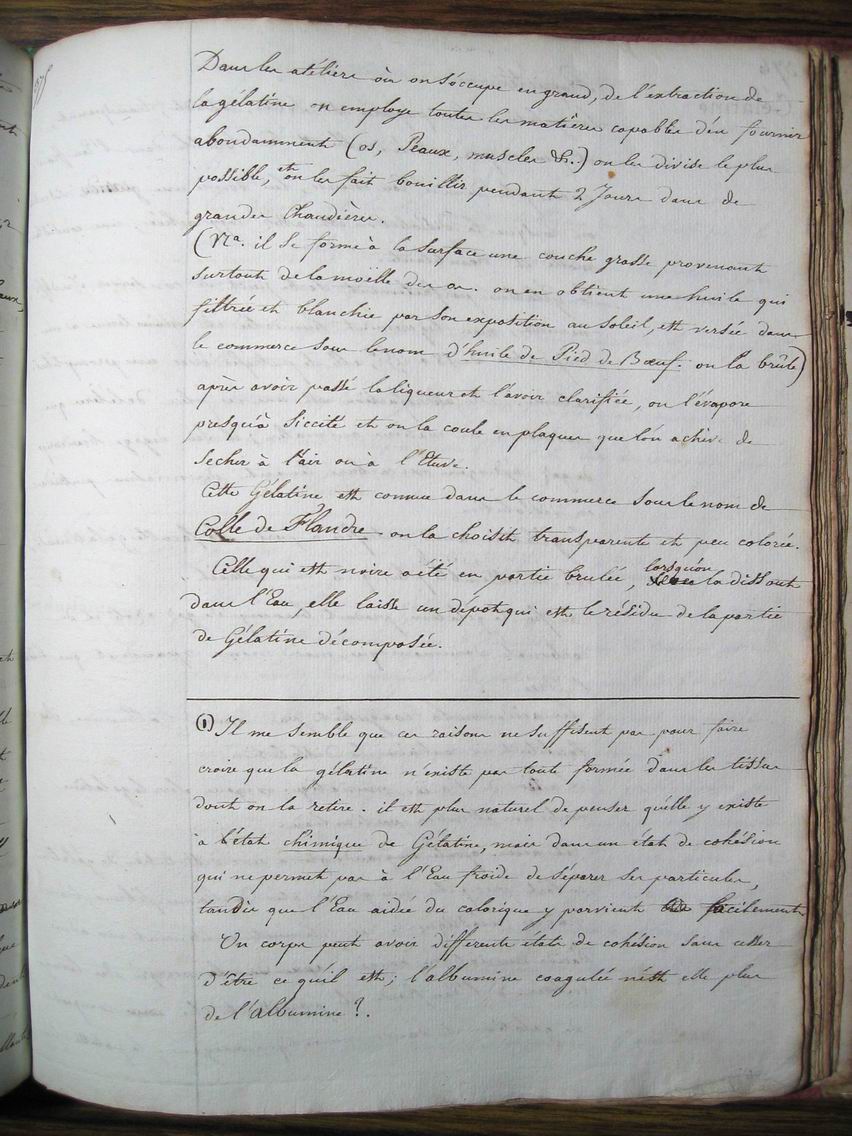 Dans les atéliers où on s'occupe en grand, de l'extraction de
la gélatine on employe toutes les matières capables d'en fournir
abondamment (os, Peaux, muscles &c..) on les divise le plus
possible, et on les fait bouillir pendant 2 Jours dans de
grandes Chaudières.
(Nª. il se forme à la surface une couche grasse provenant
surtout de la moëlle des os. on en obtient une huile qui
filtrée et blanchie par son exposition au soleil, est versée dans
le commerce sous le nom d'huile de Pied de Bœuf. on la brûle)
après avoir passé la liqueur et l'avoir clarifiée, on l'évapore
presqu'à Siccité et on la coule en plaques que l'on achève de
secher à l'air ou à l'Etuve.
Cette Gélatine est connue dans le commerce sous le nom de
Colle de Flandre on la choisit transparente et peu colorée.
Celle qui est noire a été en partie brulée, lorsqu'on la dissout
dans l'Eau, elle laisse un dépot qui est le résidu de la partie
de Gélatine décomposée.
(1) Il me semble que ces raisons ne suffisent pas pour faire
croire que la gélatine n'existe pas toute formée dans les tissus
dont on la retire. il est plus naturel de penser qu'elle y existe
à l'état chimique de Gélatine, mais dans un état de cohésion
qui ne permet pas à l'Eau froide de séparer ses particules,
tandis que l'Eau aidée du calorique y parvient facilement
Un corps peut avoir différents états de cohésion sans cesser
d'être ce qu'il est; l'albumine coagulée n'est elle plus
de l'albumine ?.